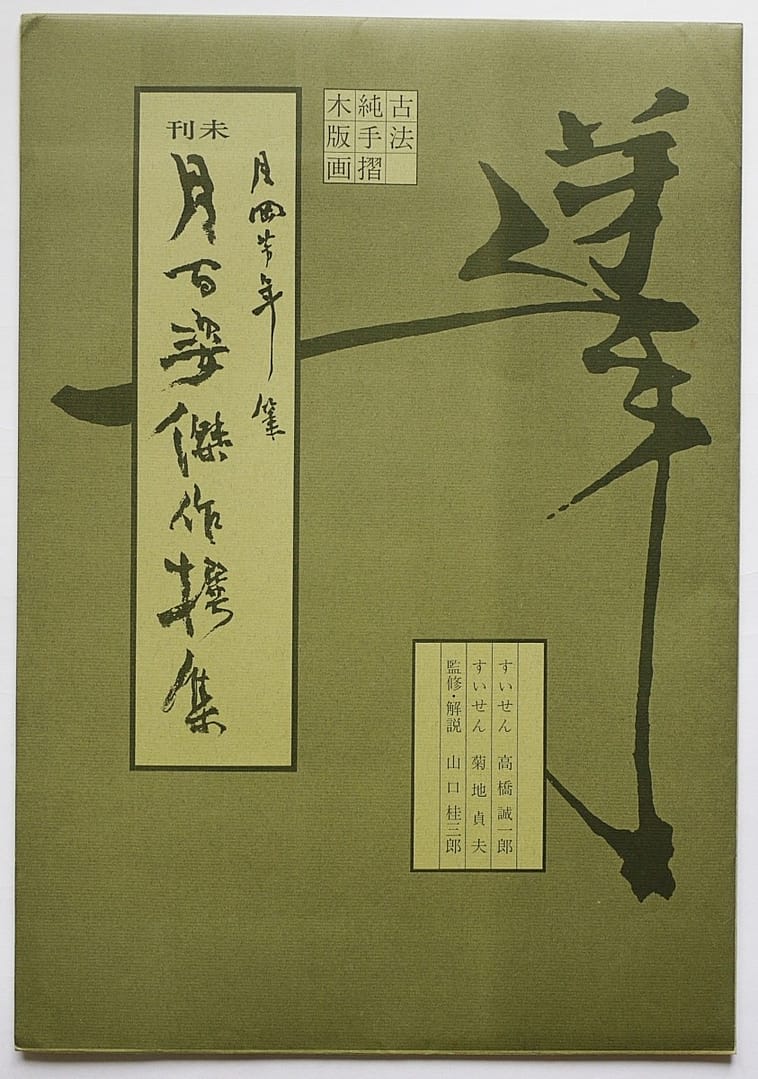 古法
純手摺
木版画
未刊
月岡芳年 筆
月百姿傑作撰集
すいせん 高橋誠一郎
すいせん 菊地貞夫
監修・解説 山口桂三郎